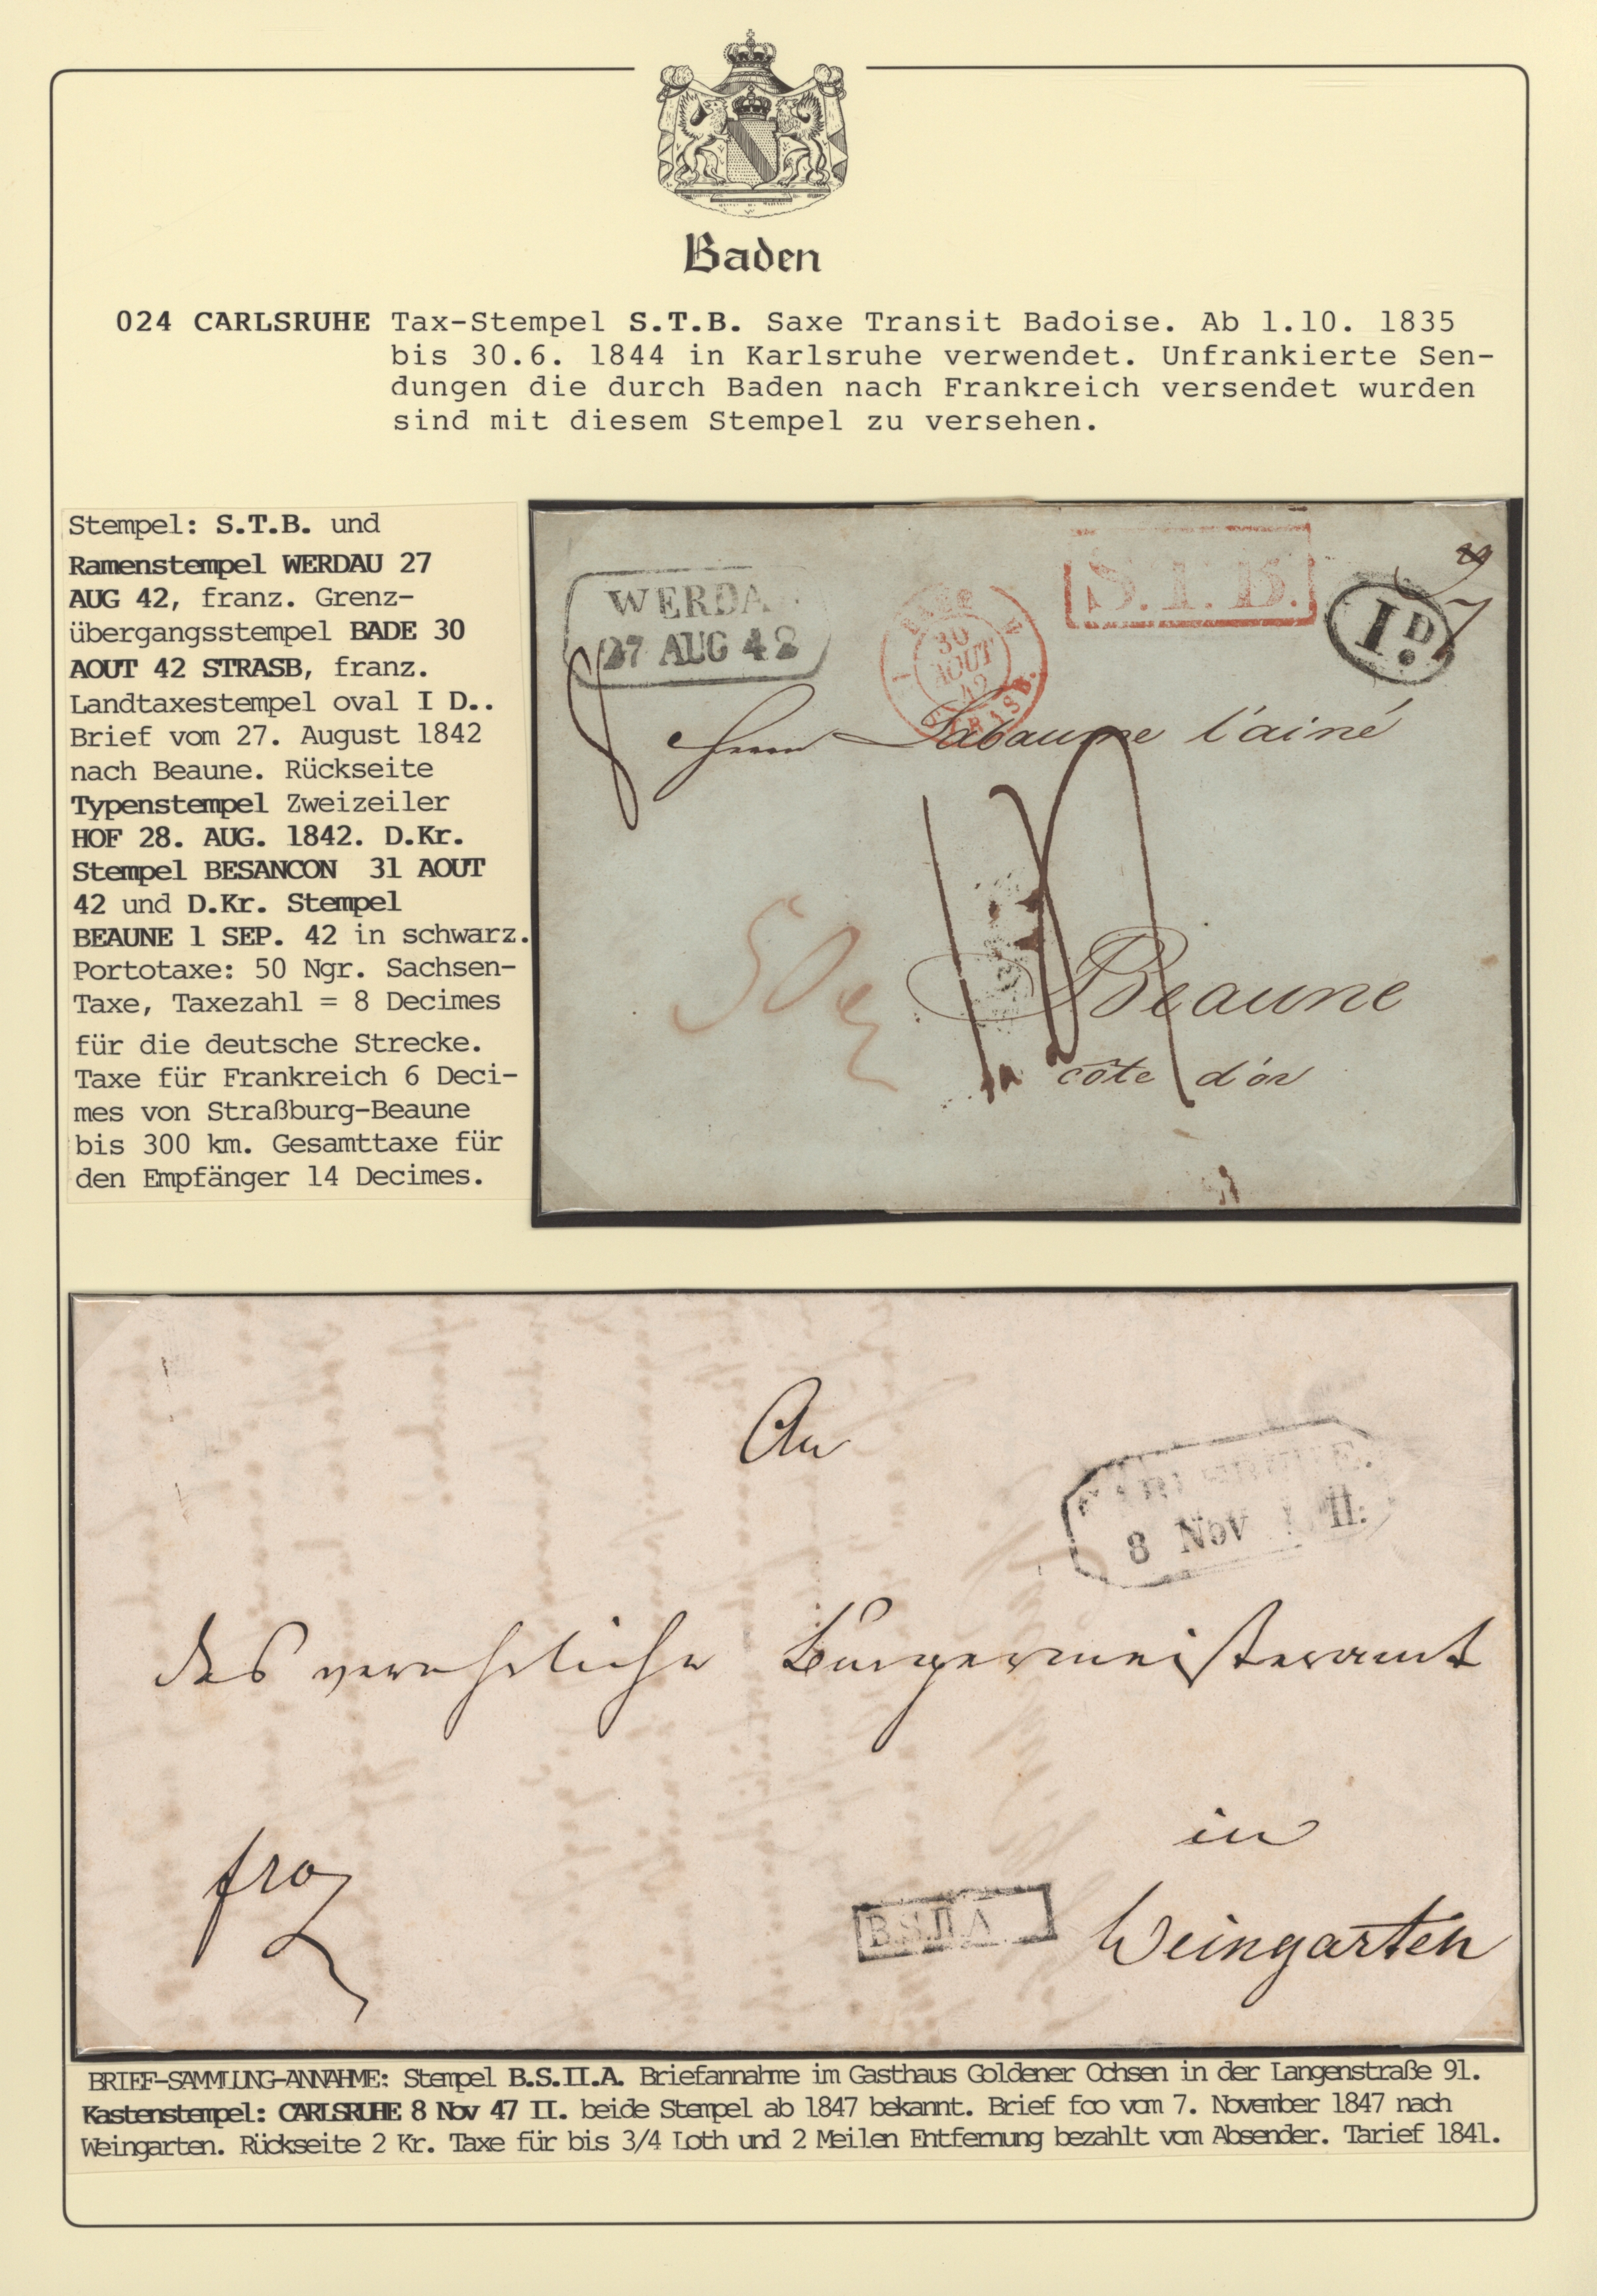 Baden
024 CARLSRUHE Tax-Stempel S.T.B. Saxe Transit Badoise. Ab 1.10. 1835
bis 30.6. 1844 in Karlsruhe verwendet. Unfrankierte Sen-
dungen die durch Baden nach Frankreich versendet wurden
sind mit diesem Stempel zu versehen.
Stempel: S.T.B. und
Ramenstempel WERDAU 27
AUG 42, franz. Grenz-
übergangsstempel BADE 30
AOUT 42 STRASB, franz.
Landtaxestempel oval I D..
Brief vom 27. August 1842
nach Beaune. Rückseite
Typenstempel Zweizeiler
HOF 28. AUG. 1842. D.Kr.
Stempel BESANCON 31 AOUT
42 und D.Kr. Stempel
BEAUNE 1 SEP. 42 in schwarz.
Portotaxe: 50 Ngr. Sachsen-
Taxe, Taxezahl = 8 Decimes
für die deutsche Strecke.
Taxe für Frankreich 6 Deci-
mes von Straßburg-Beaune
bis 300 km. Gesamttaxe für
den Empfänger 14 Decimes.
WERDA
27 AUG 42
30
AOUT
42
STRASB.
S.T.B.
I D.
8
Herrn Labaume l'ainé
50
Beaune
côte d'or
An
CARLSRUHE.
8 Nov II.
das verehrliche Bürgermeisteramt
in
Weingarten
fro
B.S.II.A
BRIEF-SAMMLUNG-ANNAHME: Stempel B.S.II.A. Briefannahme im Gasthaus Goldener Ochsen in der Langenstraße 91.
Kastenstempel: CARLSRUHE 8 Nov 47 II. beide Stempel ab 1847 bekannt. Brief fco vom 7. November 1847 nach
Weingarten. Rückseite 2 Kr. Taxe für bis 3/4 Loth und 2 Meilen Entfernung bezahlt vom Absender. Tarief 1841.